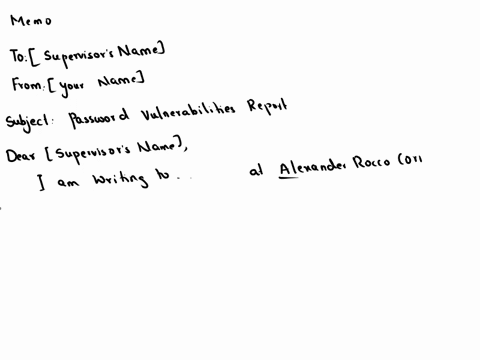 Memo
To: [Supervisor's Name]
From: [your Name]
Subject: Password Vulnerabilities Report
Dear [Supervisor's Name],
I am writing to .. at Alexander Rocco Cor